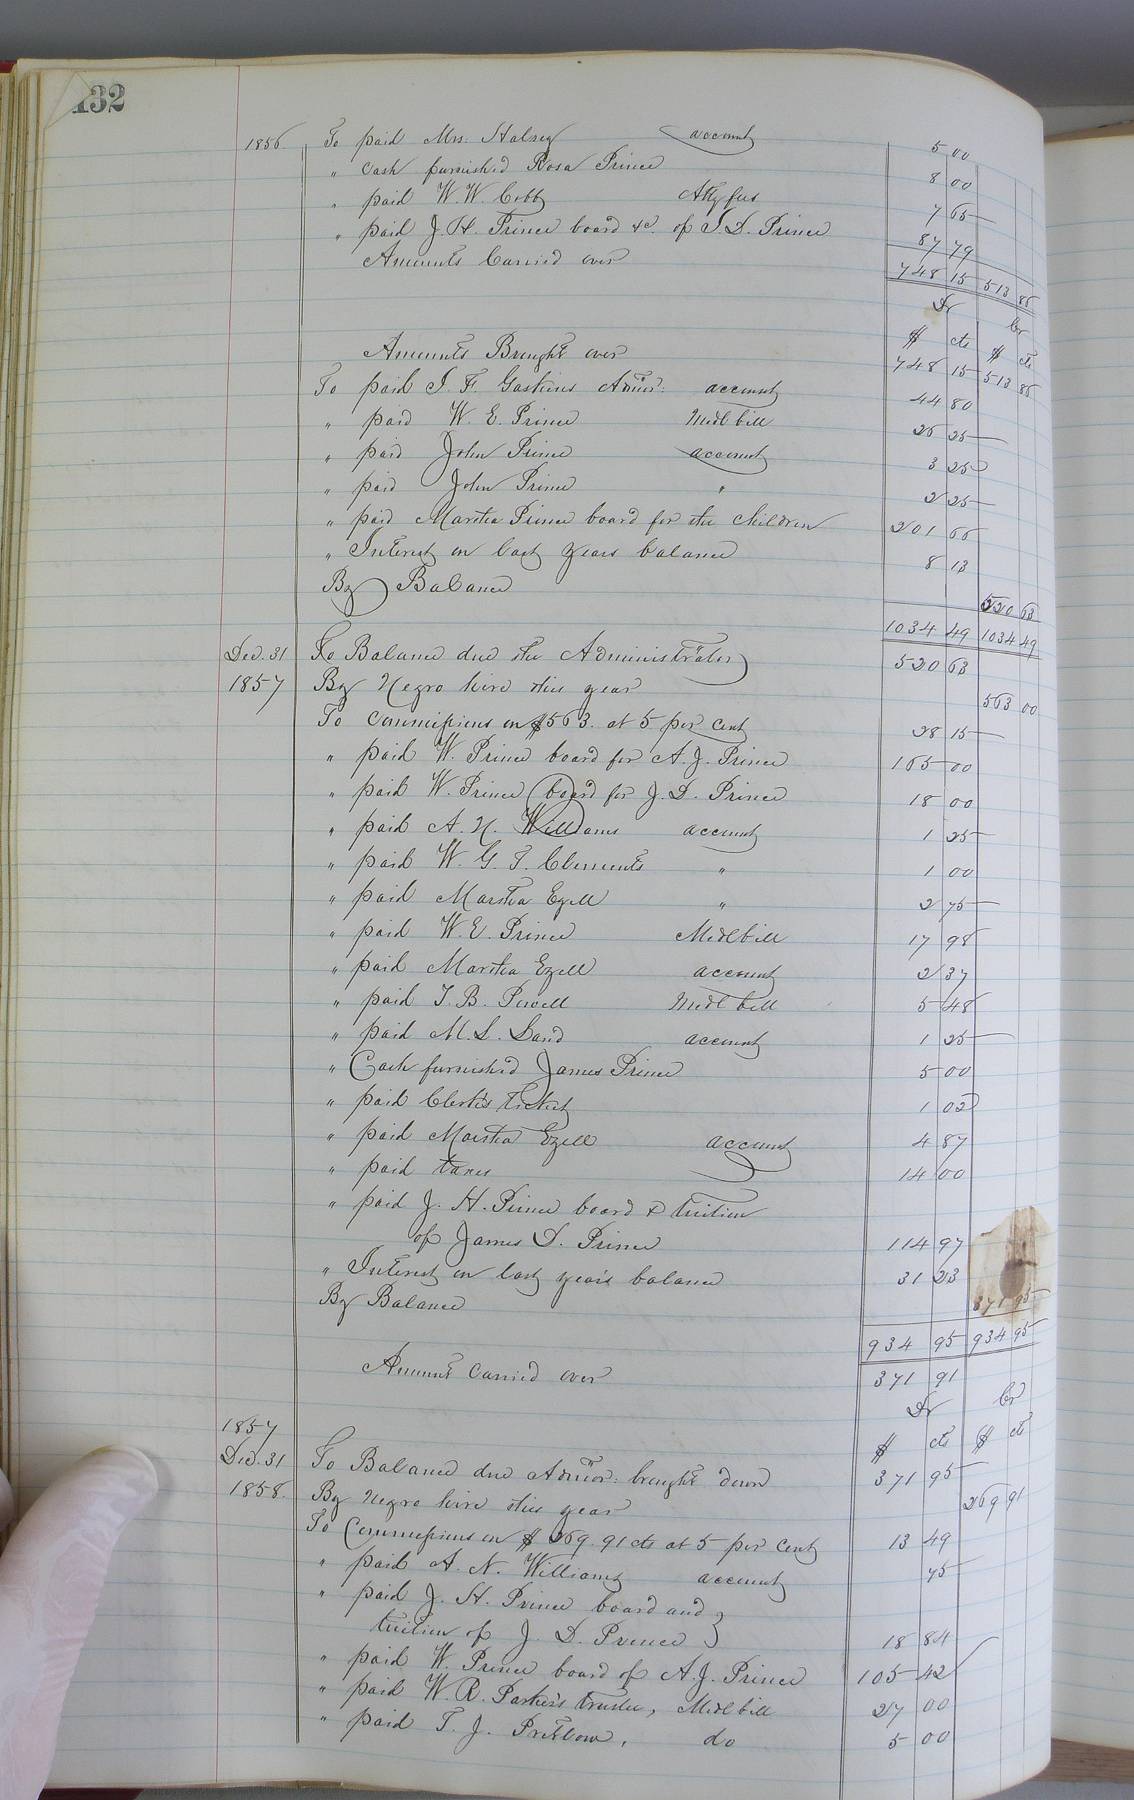 132
1856. To paid Mrs. Halsey account 5 00
" Cash furnished Rosa Prince 8 00
" paid W. W. Cobb Atty fees 7 65
" paid J. H. Prince board &c. of J. D. Prince 87 79
Amounts Carried over 748 15 513 86
Dr Cr
$ cts $ cts
Amounts Brought over 748 15 513 86
To paid J. F. Gaskins Admor: account 44 80
" paid W. E. Prince Medl bill 26 25
" paid John Prince account 3 25
" paid John Prince " 2 25
" paid Martha Prince board for the Children 201 66
" Interest on last years balance 8 13
By Balance 520 63
1034 49 1034 49
Dec. 31 To Balance due the Administrator 520 63
1857 By Negro hire this year 563 00
To commissions on $563. at 5 per cent 28 15
" paid W. Prince board for A. J. Prince 165 00
" paid W. Prince board for J. D. Prince 18 00
" paid A. N. Williams account 1 25
" paid W. G. F. Clements " 1 00
" paid Martha Ezell " 2 75
" paid W. E. Prince Medl bill 17 98
" paid Martha Ezell account 2 37
" paid T. B. Powell Medl bill 5 48
" paid M. L. Land account 1 25
" Cash furnished James Prince 5 00
" paid Clerk's ticket 1 02
" paid Martha Ezell account 4 87
" paid taxes 14 00
" paid J. H. Prince board & tuition
of James D. Prince 114 97
" Interest on last year's balance 31 23
By Balance 371 95
934 95 934 95
Amount carried over 371 91
Dr Cr
1857 $ cts $ cts
Dec. 31 To Balance due Admor: brought down 371 95
1858. By Negro hire this year 269 91
To Commissions on $ 269. 91 cts at 5 per cent 13 49
" paid A. N. Williams account 75
" paid J. H. Prince board and
tuition of J. D. Prince 18 84
" paid W. Prince board of A. J. Prince 105 42
" paid W. R. Parker's trustee, Medl bill 27 00
" paid T. J. Pretlow, do 5 00